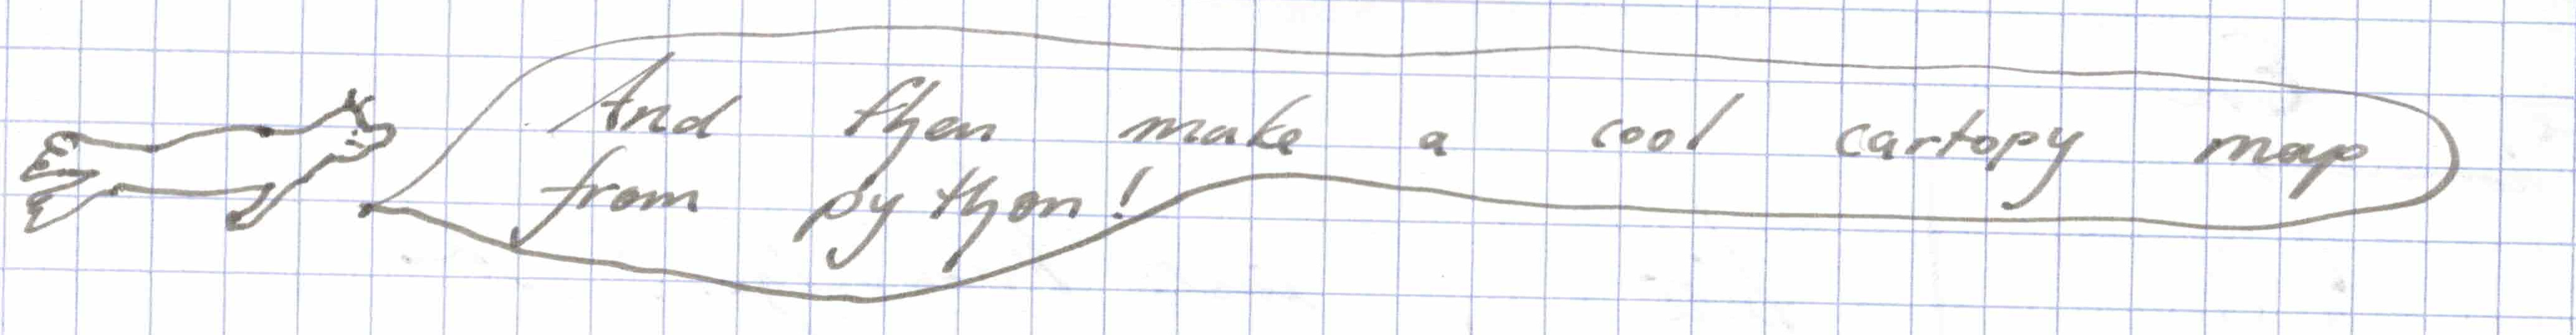 And then make a cool cartopy map
from python!